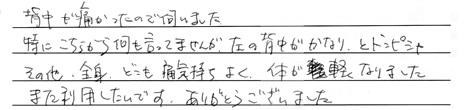 背中が痛かったので伺いました
特にこちらから何も言ってませんが、左の背中がかなり、とドンピシャ
その他、全身、どこも痛気持ちよく、体が軽くなりました
また利用したいです。ありがとうございました